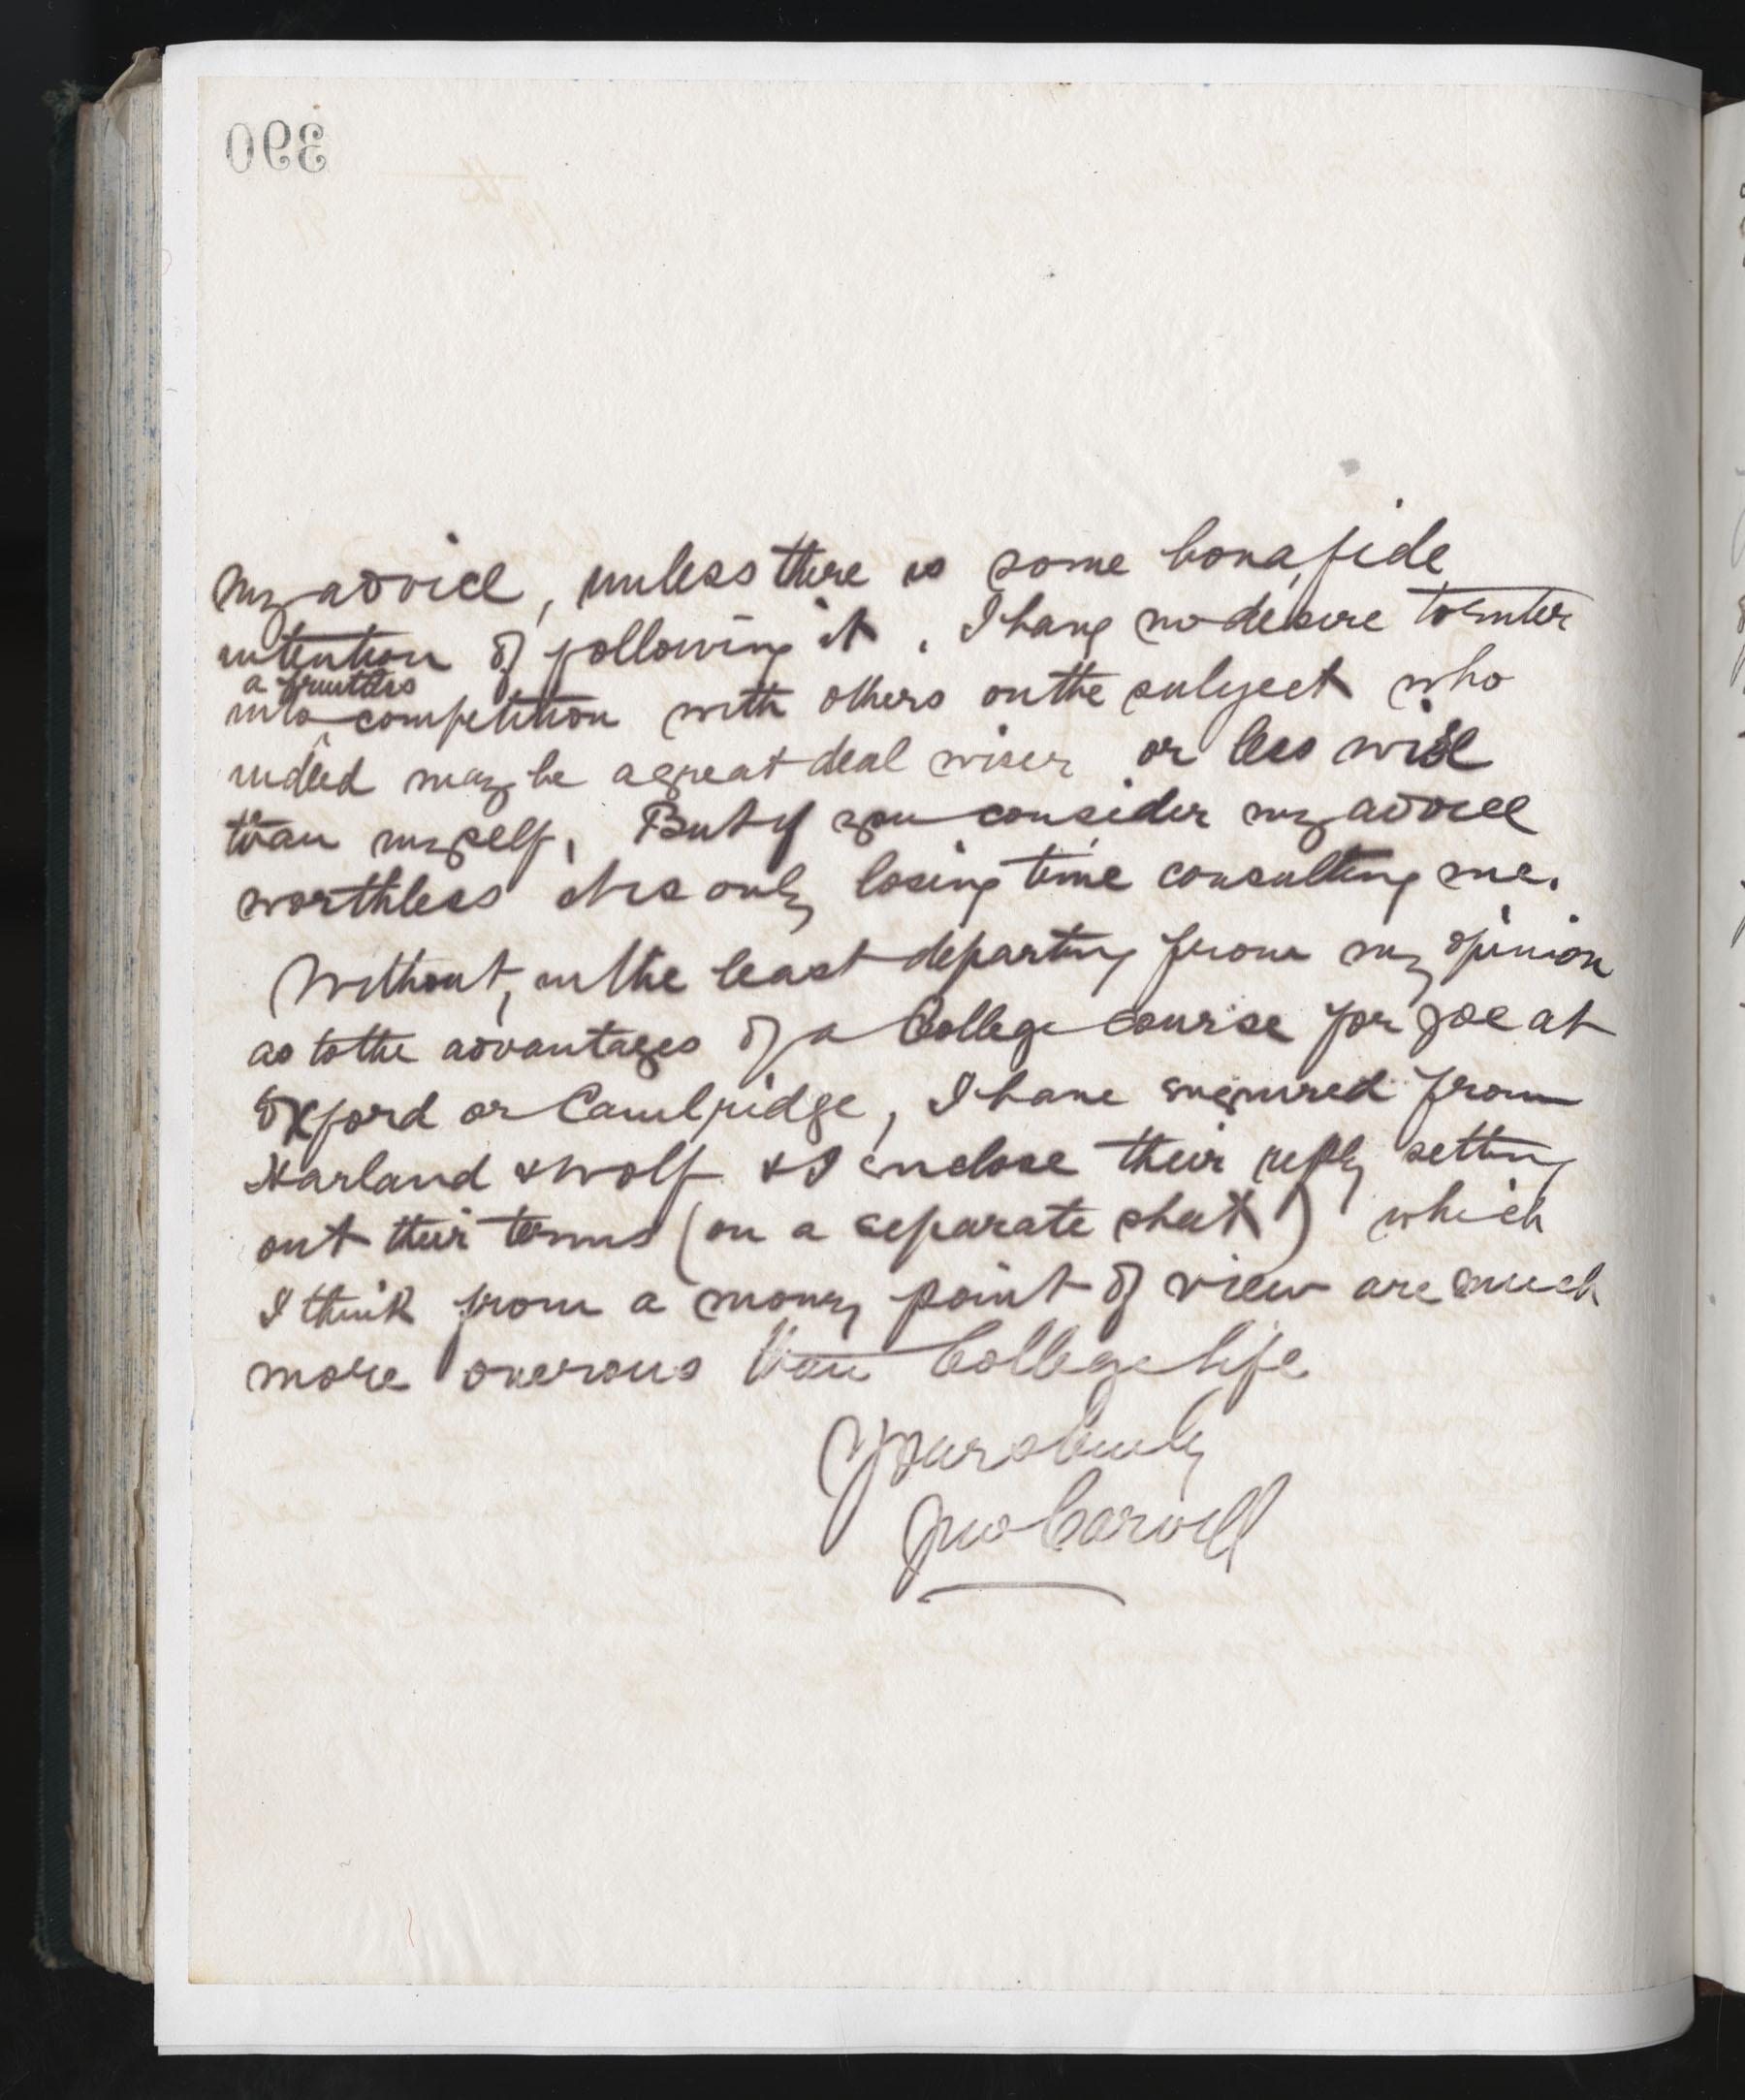 390
my advice, unless there is some bona fide
intention of following it. I have no desire to enter
a fruitless
into competition with others on the subject who
indeed may be a great deal wiser or less wise
than myself. But if you consider my advice
worthless it is only losing time consulting me.
Without, in the least departing from my opinion
as to the advantages of a College course for Joe at
Oxford or Cambridge, I have enquired from
Harland & Wolf & I enclose their reply setting
out their terms (on a separate sheet) which
I think from a money point of view are much
more onerous than College life
Yours truly
Jno Carvill